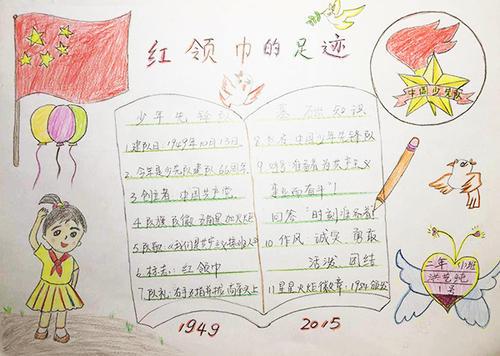 红领巾的足迹
中国少先队
少年先锋队
1.建队日:1949年10月13日
2.今年是少先队建队66周年
3.创立者:中国共产党
4.队旗队徽:五角星加火炬
5.队歌:《我们是共产主义接班人》
6.标志:红领巾
7.队礼:右手五指并拢高举头上
基础知识
8.队名:中国少年先锋队
9.呼号:准备着为共产主义
事业而奋斗!
回答“时刻准备着”
10.作风 诚实 勇敢
活泼 团结
11.星星火炬徽章:
1949
2015
二年
班
1号